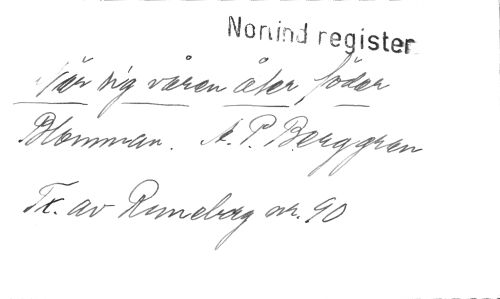 Nonind register
När sig våren åter föder
Blomman. A. P. Berggren
Tx. av Runeberg nr. 90